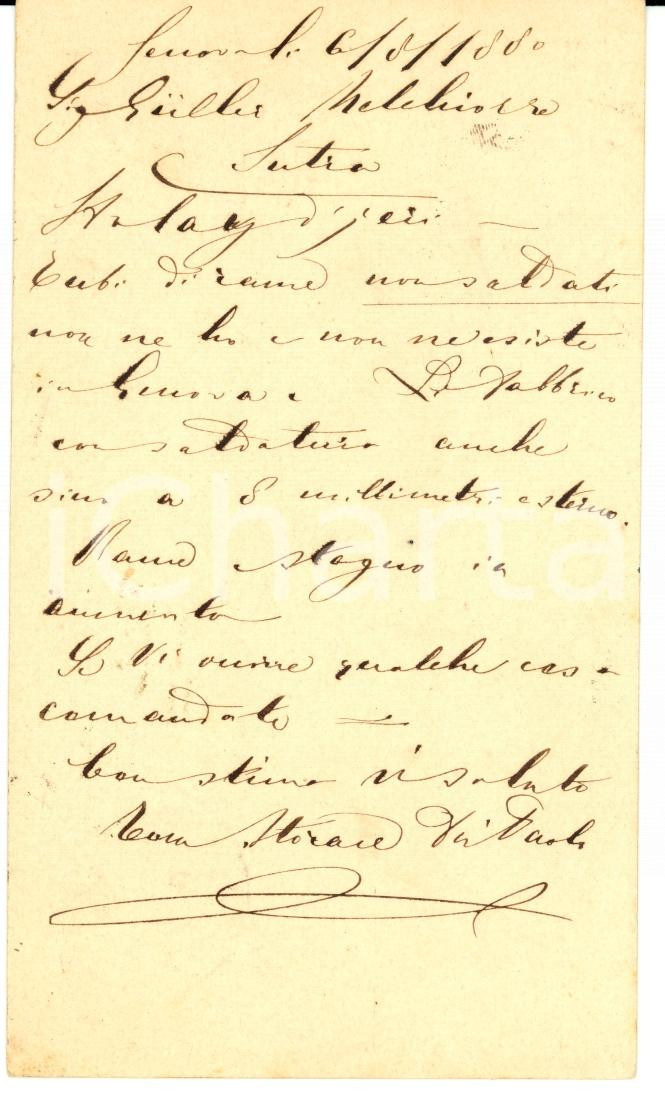 Genova li 6/8/1880
Sig Güller Melchiorre
Intra
d'jeri —
Tubi di rame non saldati
non ne ho e non ne esiste
in Genova e Li fabbrico
con saldatura anche
sino a 8 millimetri esterno.
Rame e stagno in
aumento
Se Vi occorre qualche cosa
comandate —
Con stima Vi saluto
Storace di Paolo
iCharta